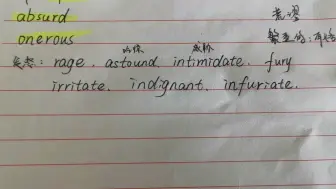 absurd 荒谬
onerous 繁重的;
rage. astound intimidate. fury
irritate. indignant. infuriate.